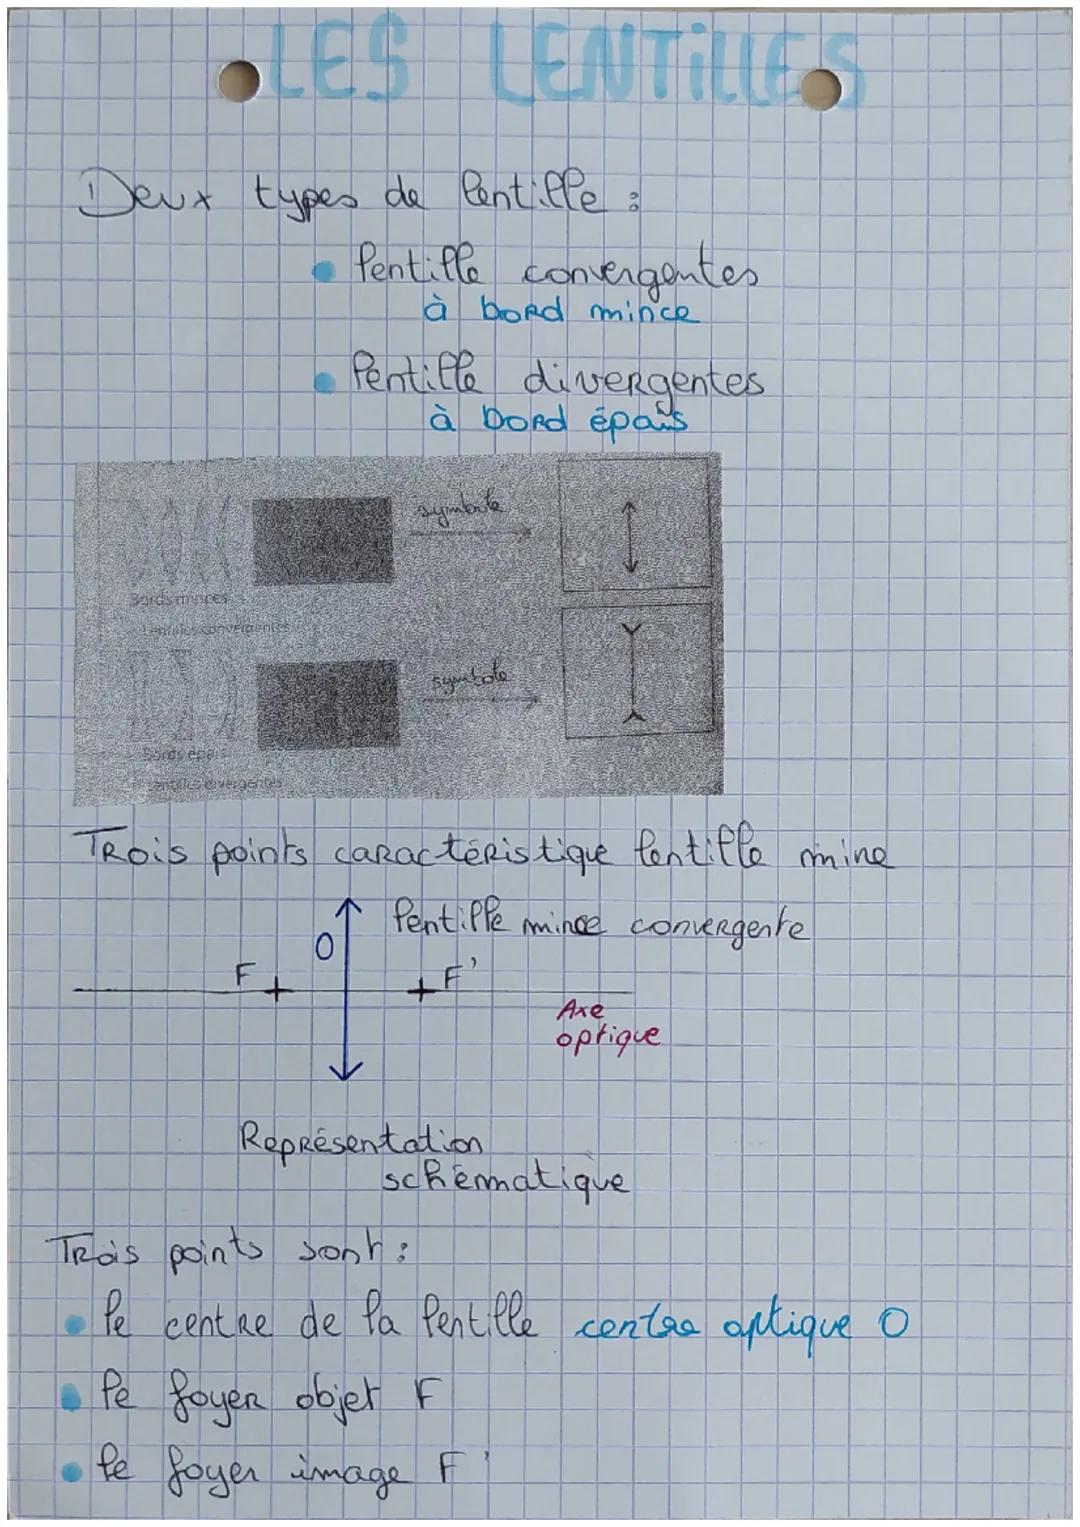 LES LENTILLES
Deux types de lentille :
lentille convergentes
à bord mince
lentille divergentes
à bord épais
symbole
Bords minces
Lentilles convergentes
symbole
Bords épais
Lentilles divergentes
Trois points caractéristique lentille mine
lentille mince convergente
O
F
F'
Axe
optique
Représentation
schématique
Trois points sont :
le centre de la lentille centre optique O
le foyer objet F
le foyer image F'